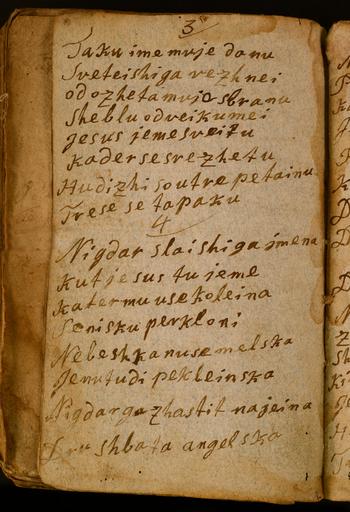 3
Taku ime muje danu
Sveteishiga rezhnei
od ozheta muje sbranu
Sheblu odveikumei
jesus jeme sveitu
kader se srezhe tu
Hudizhi soutre petainu
Trese se ta paku
4
Nigdar slaishiga jmena
kut jesus tu jeme
katermu use koleina
Se nisku perkloni
Nebeshka nu semelska
Jenu tudi pekleinska
Nigdar ga zhastit najeina
shbata angelska